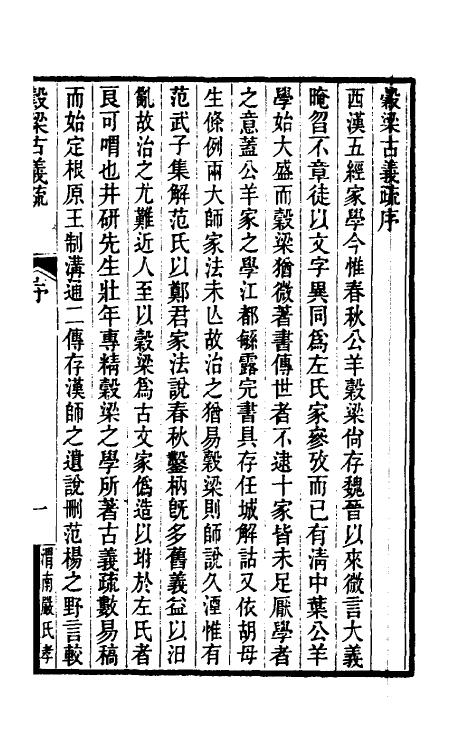 穀梁古義疏序
西漢五經家學今惟春秋公羊穀梁尙存魏晉以來微言大義
晻曶不章徒以文字異同爲左氏家參攷而已有淸中葉公羊
學始大盛而穀梁猶微著書傳世者不逮十家皆未足厭學者
之意蓋公羊家之學江都繇露完書具存任城解詁又依胡母
生條例兩大師家法未亾故治之猶易穀梁則師說久湮惟有
范武子集解范氏以鄭君家法說春秋鑿枘旣多舊義益以汨
亂故治之尤難近人至以穀梁爲古文家僞造以坿於左氏者
良可喟也井研先生壯年專精穀梁之學所著古義疏數易稿
而始定根原王制溝通二傳存漢師之遺說刪范楊之野言較
穀梁古義疏
序
一
渭南嚴氏孝